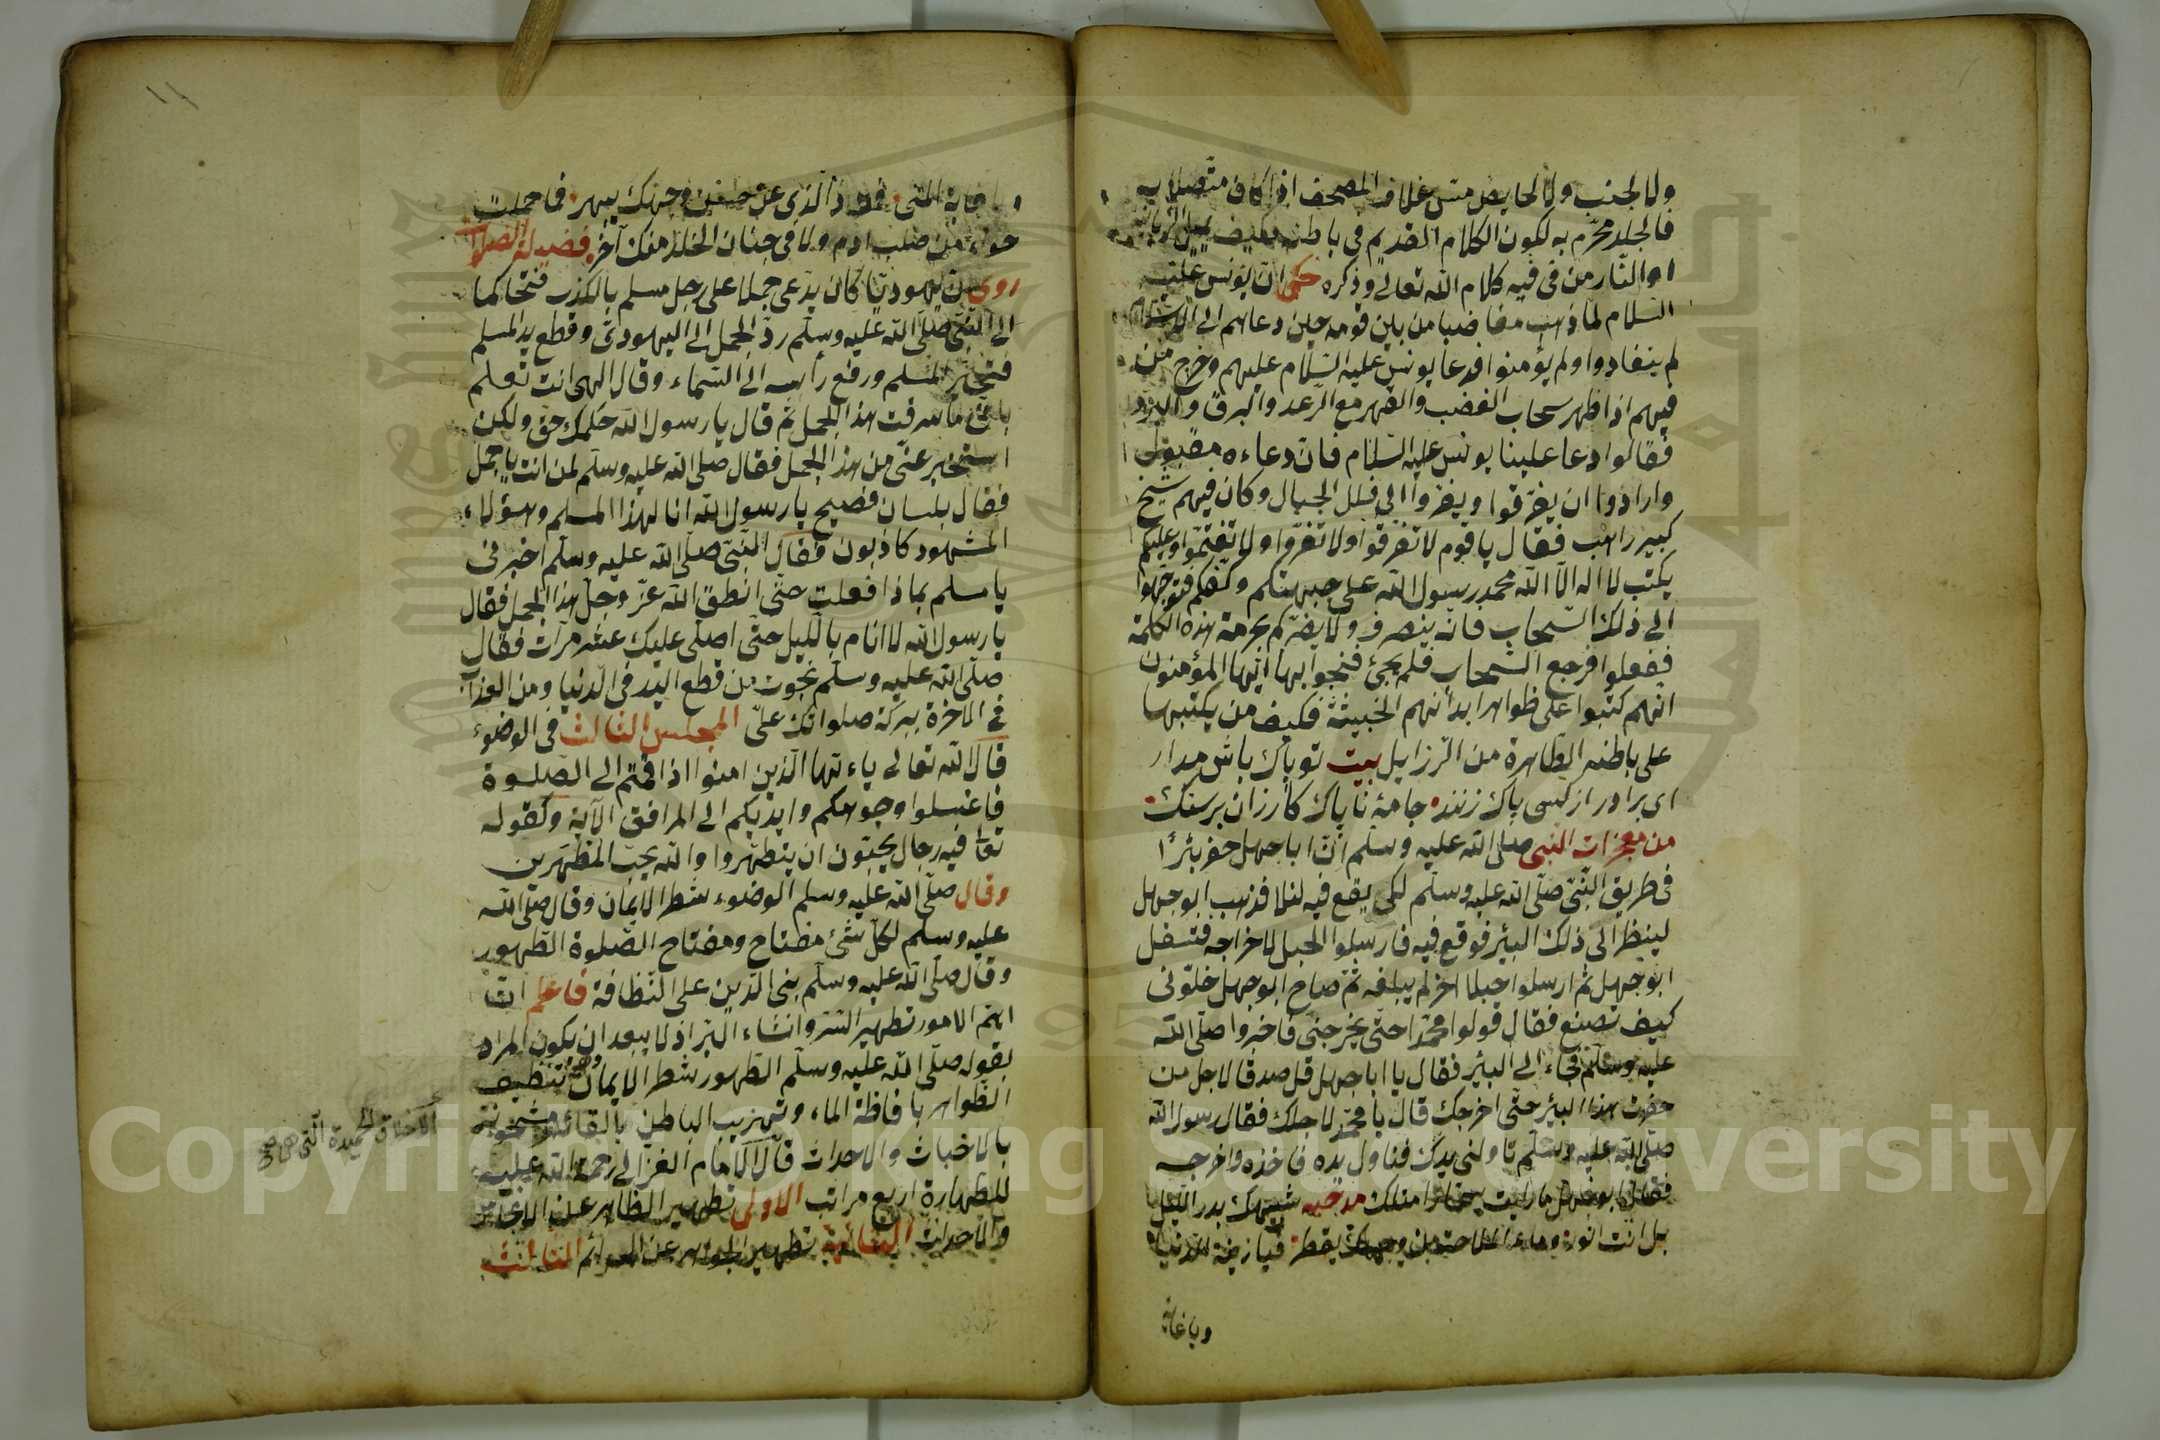 ولا لجنب ولا لحايض متس غلاف المصحف اذا كان متصلا به
فالجلد محرم به لكون الكلام القديم في باطنه فكيف
او النار من في فيه كلام الله تعالى وذكره حكى ان يونس عليه
السلام لما ذهب مغاضبا من بين قومه حين دعاهم الى
لم ينقادوا ولم يؤمنوا فدعا يونس عليه السلام عليهم وخرج من
فيهم اذا ظهر سحاب الغضب والقهر مع الرعد والبرق والبرد
فقالوا دعا علينا يونس عليه السلام فان دعاءه مقبول
وارادوا ان يغرقوا ويفروا الى قلل الجبال وكان فيهم شيخ
كبير راهب فقال يا قوم لا تفرقوا ولا تفروا ولا تغتموا وعليكم
يكتب لا اله الا الله محمد رسول الله على جبهتكم وكفكم فتوجهوا
الى ذلك السحاب فانه ينصرف ولا يضركم بحرمة هذه الكلمة
ففعلوا فرجع السحاب فلم يجئ فنجوا بها ايها المؤمنون
انهم كتبوا على ظواهر ابدانهم الخبيثة فكيف من يكتبها
على باطنه الطاهرة من الرزايل بيت تو پاك باش مدار
اى برادر از كسى باك زنند جامهٔ ناپاك كازران برسنك
من معجزات النبى صلى الله عليه وسلم ان ابا جهل حفر بئرا
فى طريق النبى صلى الله عليه وسلم لكى يقع فيه لئلا فذهب ابو جهل
لينظر الى ذلك البئر فوقع فيه فارسلوا الحبل لاخراجه فتسفل
ابو جهل ثم ارسلوا حبلا اخر لم يبلغه ثم صاح ابو جهل خلونى
كيف تصنع فقال قولوا محمدا حتى يخرجنى فاخبروا صلى الله
عليه وسلم فجاء الى البئر فقال يا ابا جهل قل صدقا لاجل من
حفرت هذا البئر حتى اخرجك قال يا محمد لاجلك فقال رسول الله
صلى الله عليه وسلم ناولنى يدك فناول يده فاخذه واخرجه
فقال ابو جهل ما رايت سحارا مثلك مدحيه شبهتك بدر الليل
بل انت انور وماء الملاحة من وجهك يقطر فيا زينة الدنيا
ويا غاية
١١
ويا غاية المنى فمن ذا الذى عن حسن وجهك يبهر فما حملت
حواء من صلب ادم ولا فى جنان الخلد مثلك آخر فضيلة الصلاة
روى ان يهوديا كان يدعى جملا على رجل مسلم بالكذب فتحاكما
الى النبى صلى الله عليه وسلم رد الجمل الى اليهودى وقطع يد المسلم
فتحير المسلم ورفع رأسه الى السماء وقال الهى انت تعلم
بانى ما سرقت هذا الجمل ثم قال يا رسول الله حكمك حق ولكن
استخبر عنى من هذا الجمل فقال صلى الله عليه وسلم لمن انت يا جمل
فقال بلسان فصيح يا رسول الله انا لهذا المسلم وهؤلاء
المشهود كاذبون فقال النبى صلى الله عليه وسلم اخبرنى
يا مسلم بماذا فعلت حتى انطق الله عز وجل هذا الجمل فقال
يا رسول الله لا انام بالليل حتى اصلى عليك عشر مرات فقال
صلى الله عليه وسلم نجوت من قطع اليد فى الدنيا ومن العذاب
فى الاخرة ببركة صلواتك على المجلس الثالث فى الوضوء
قال الله تعالى ياءيها الذين امنوا اذا قمتم الى الصلوة
فاغسلوا وجوهكم وايديكم الى المرافق الآية وكقوله
تعا فيه رجال يحبون ان يتطهروا والله يحب المطهرين
وقال صلى الله عليه وسلم الوضوء شطر الايمان وقال صلى الله
عليه وسلم لكل شئ مفتاح ومفتاح الصلوة الطهور
وقال صلى الله عليه وسلم بنى الدين على النظافة فاعلم ان
اهم الامور تطهير السر وانشاء البر اذ لا يبعد ان يكون المراد
بقوله صلى الله عليه وسلم الطهور شطر الايمان هو تنظيف
الظواهر بافاظة الماء وتهذيب الباطن بالقائه مشحونة
بالاخباث والاحداث قال الامام الغزالى رحمة الله عليه
للطهارة اربع مراتب الاولى تطهير الظاهر عن الاخباث
والاحداث الثانية تطهير الجوهر عن الجرائم الثالث
الاخلاق الحميدة التى هى صح
Copyright © King Saud University